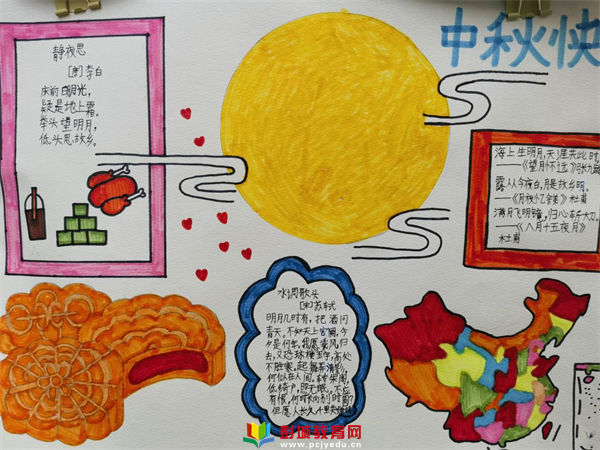 中秋快
静夜思
[唐]李白
床前明月光，
疑是地上霜。
举头望明月，
低头思故乡。
海上生明月，天涯共此时
——《望月怀远》张九龄
露从今夜白，月是故乡明。
——《月夜忆舍弟》杜甫
满月飞明镜，归心折大刀。
——《八月十五夜月》
杜甫
水调歌头
[宋]苏轼
明月几时有，把酒问
青天。不知天上宫阙，今
夕是何年。我愿乘风归
去，又恐琼楼玉宇，高处
不胜寒。起舞弄清影，
何似在人间。转朱阁，
低绮户，照无眠。不应
有恨，何时长向别时圆？
但愿人长久，千里共
彭城教育网
www.pcjyedu.cn